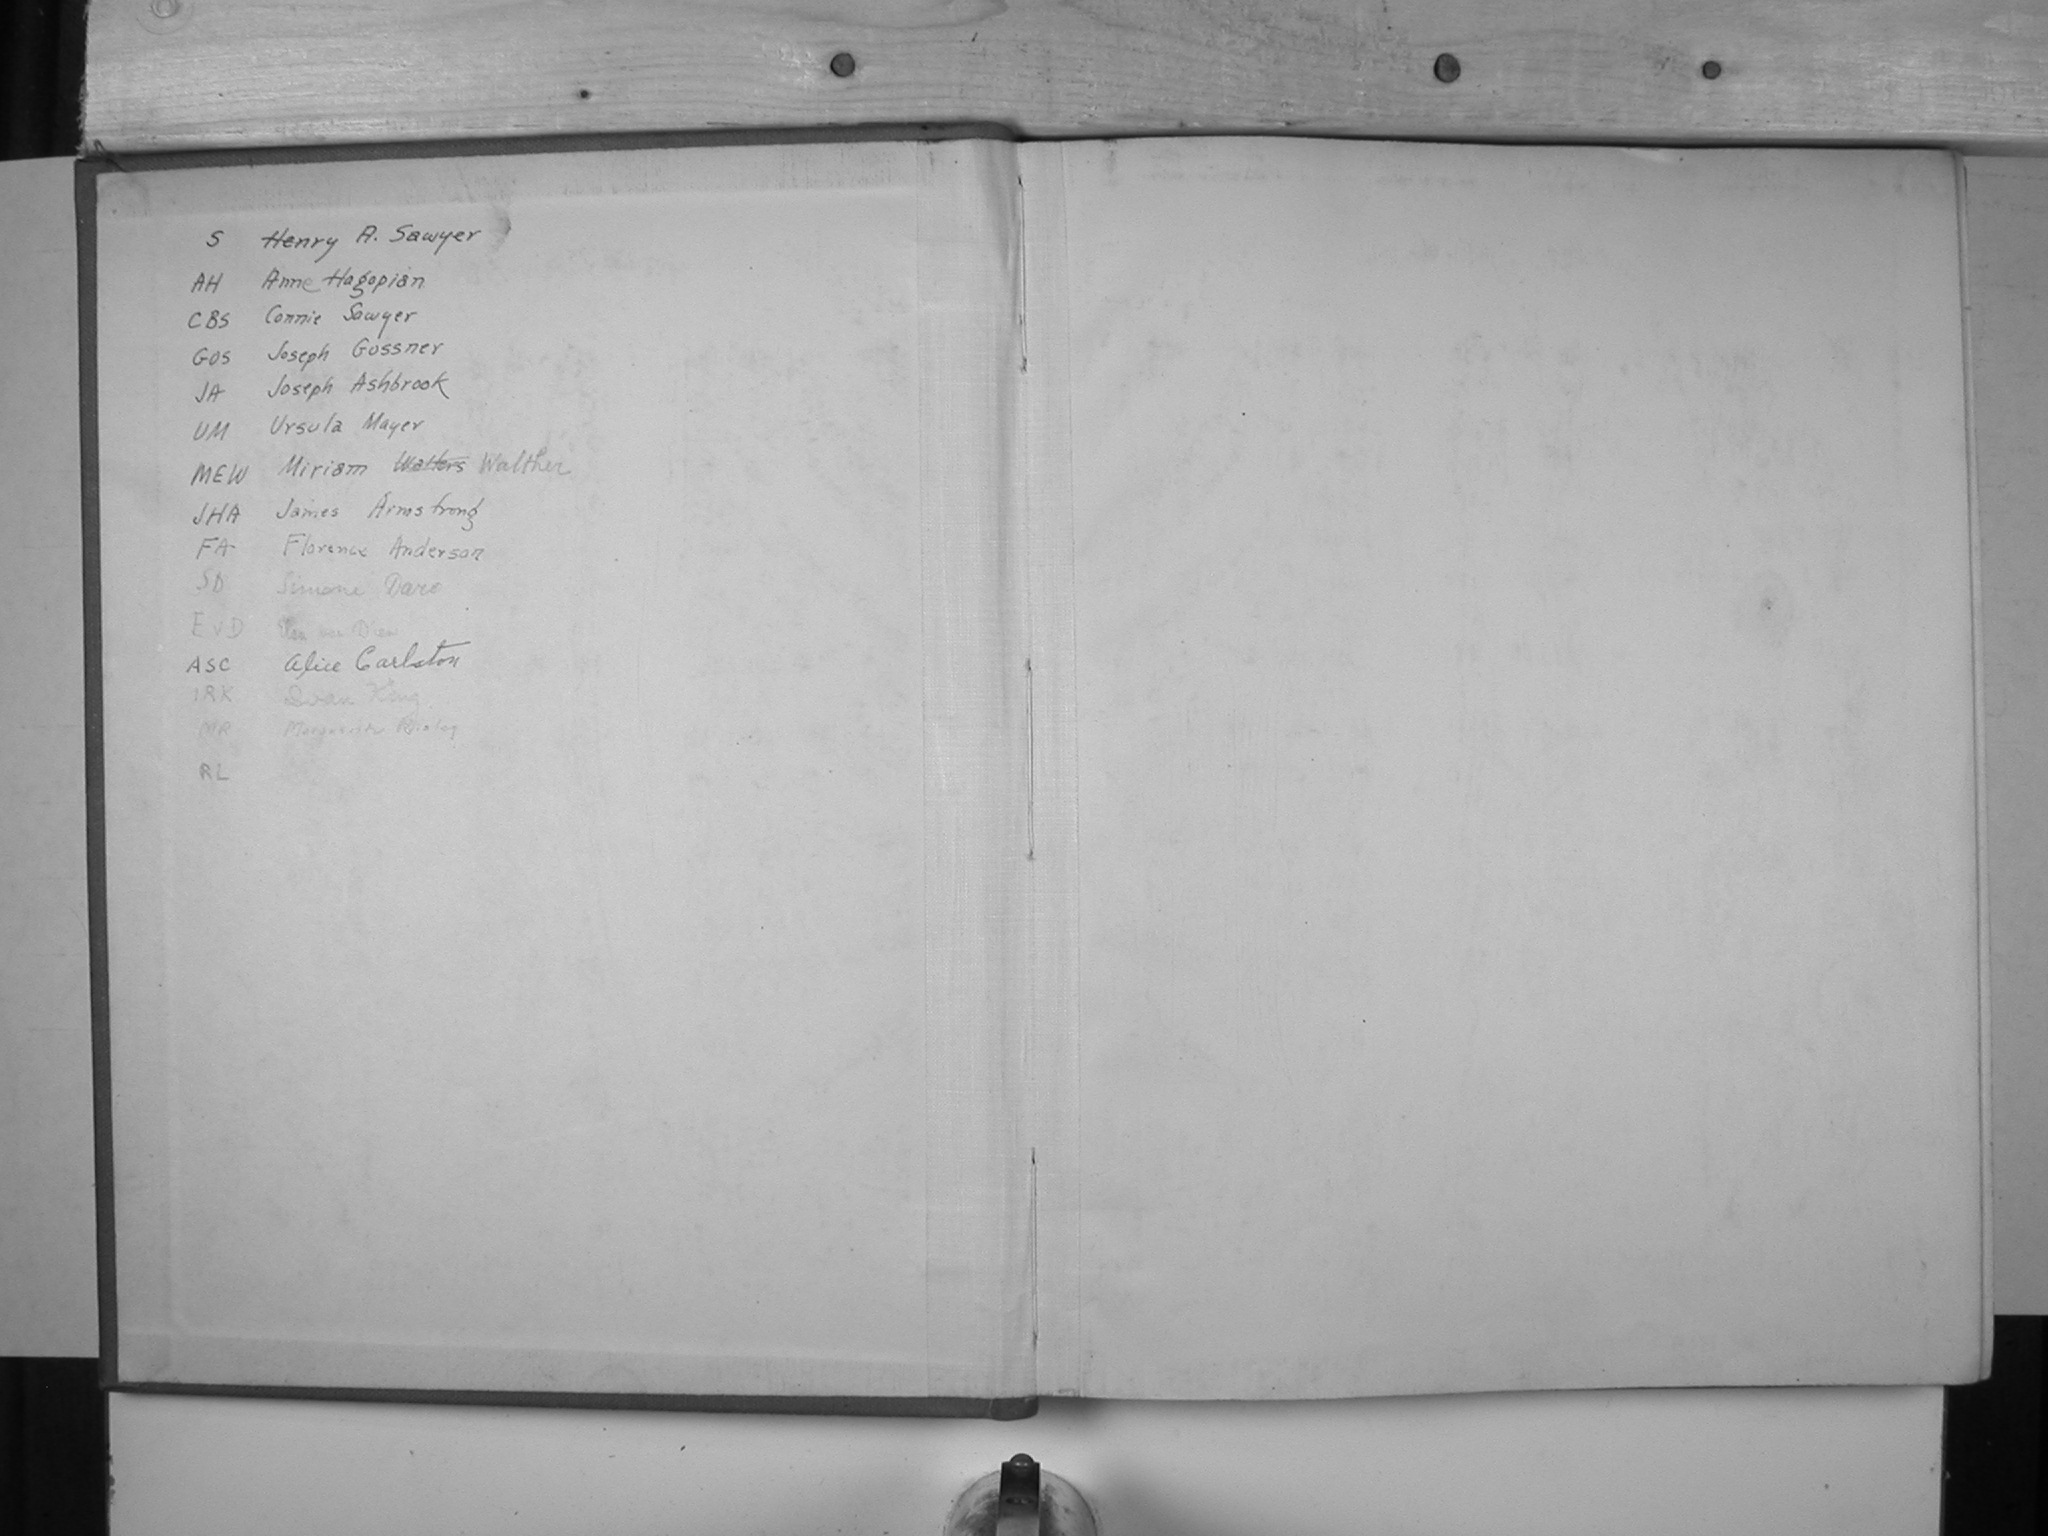 S Henry A. Sawyer
AH Anne Hagopian
CBS Connie Sawyer
GOS Joseph Gossner
JA Joseph Ashbrook
UM Ursula Mayer
MEW Miriam Watters Walther
JHA James Armstrong
FA Florence Anderson
SD Simone Daro
EvD
ASC Alice Carlston
IRK Ivan King
MR
RL